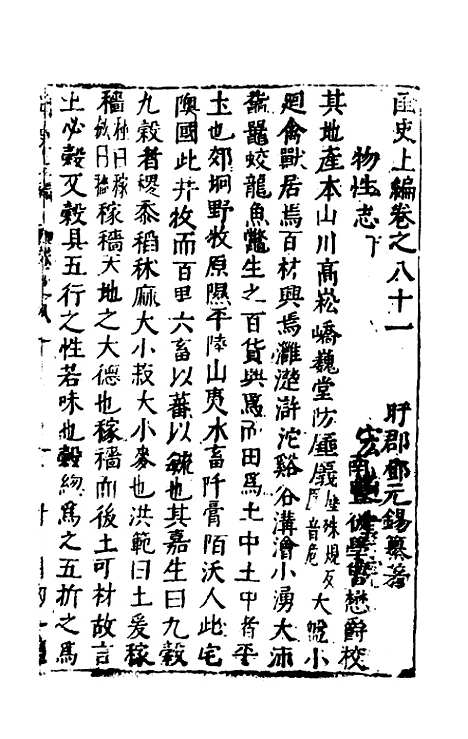 函史上編卷之八十一 盱郡鄧元錫纂著
物性志下 南 學曹懋爵校
其地產本山川高崧嶠巍堂防 㕒義 殊規反 音危 大 小
廻禽獸居焉百材興焉灘漣滸沱谿谷溝澮小湧大沛
黿鼉蛟龍魚鱉生之百貨興焉而田為土中土中者平
土也郊坰野牧原隰平陸山夷水畜阡膏陌沃人此宅
隩國此井牧而百里六畜以蕃以毓也其嘉生曰九穀
九穀者稷黍稻秫麻大小菽大小麥也洪範曰土爰稼
穡 種曰稼斂曰穡 稼穡大地之大德也稼穡而後土可材故言
土必穀又穀具五行之性若味也穀総為之五折之為